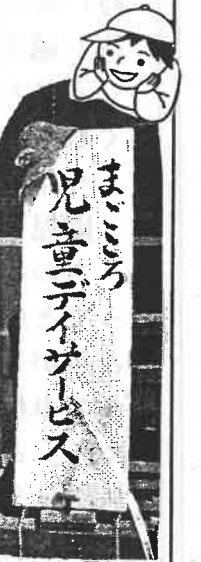 まごころ
児童デイサービス